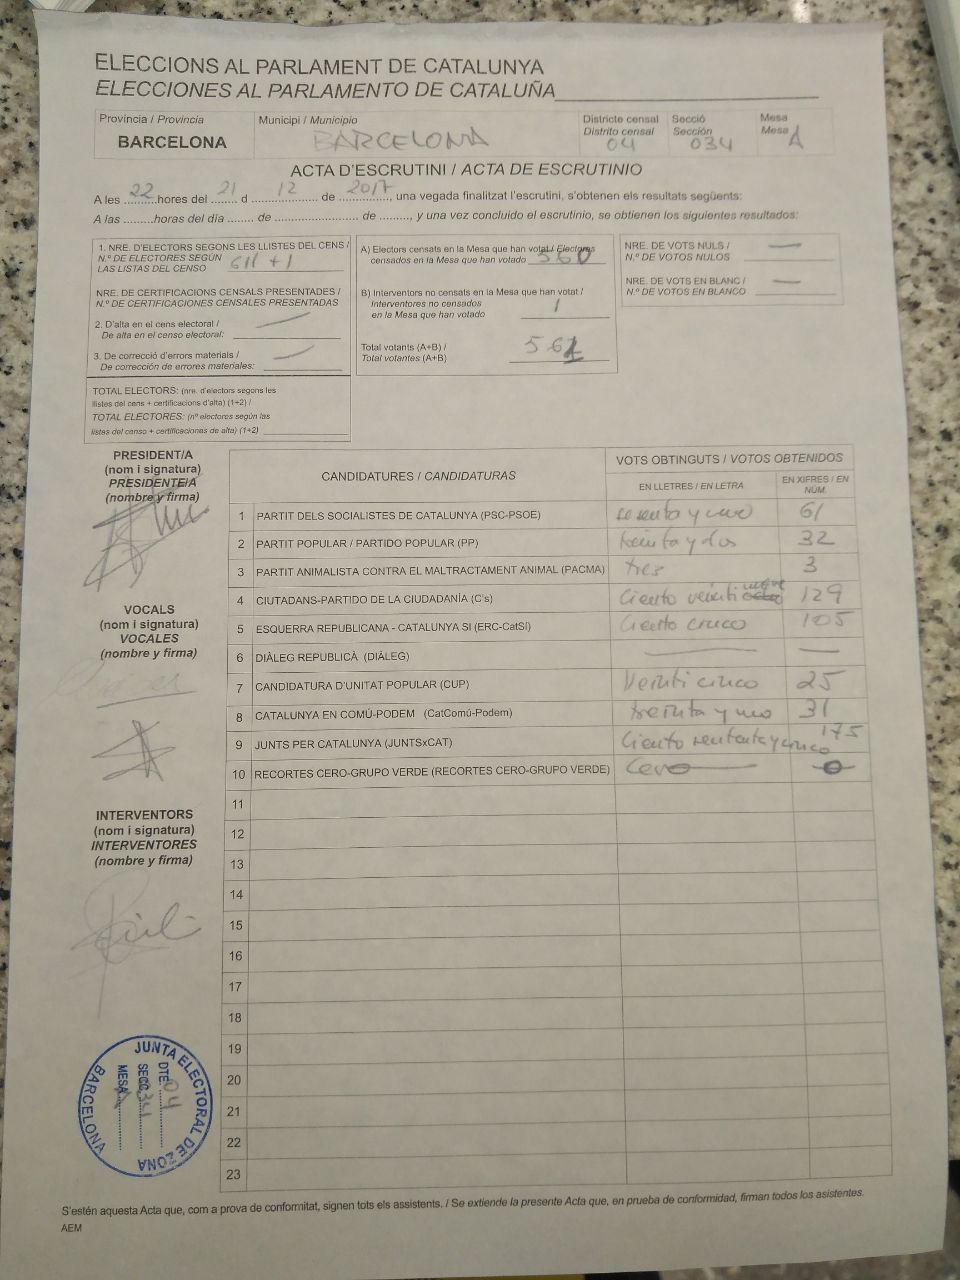 ELECCIONS AL PARLAMENT DE CATALUNYA
ELECCIONES AL PARLAMENTO DE CATALUÑA
Província / Provincia
BARCELONA
Municipi / Municipio
BARCELONA
Districte censal
Distrito censal
04
Secció
Sección
034
Mesa
Mesa A
ACTA D'ESCRUTINI / ACTA DE ESCRUTINIO
A les 22 hores del 21 d 12 de 2017, una vegada finalitzat l'escrutini, s'obtenen els resultats següents:
A las .........horas del día ....... de ......................... de ........., y una vez concluido el escrutinio, se obtienen los siguientes resultados:
1. NRE. D'ELECTORS SEGONS LES LLISTES DEL CENS /
N.º DE ELECTORES SEGÚN
LAS LISTAS DEL CENSO 611 + 1
NRE. DE CERTIFICACIONS CENSALS PRESENTADES /
N.º DE CERTIFICACIONES CENSALES PRESENTADAS
2. D'alta en el cens electoral /
De alta en el censo electoral: —
3. De correcció d'errors materials /
De corrección de errores materiales: —
TOTAL ELECTORS: (nre. d'electors segons les
llistes del cens + certificacions d'alta) (1+2) /
TOTAL ELECTORES: (nº electores según las
listas del censo + certificaciones de alta) (1+2)
A) Electors censats en la Mesa que han votat / Electores
censados en la Mesa que han votado 560
B) Interventors no censats en la Mesa que han votat /
Interventores no censados
en la Mesa que han votado 1
Total votants (A+B) /
Total votantes (A+B) 561
NRE. DE VOTS NULS /
N.º DE VOTOS NULOS —
NRE. DE VOTS EN BLANC /
N.º DE VOTOS EN BLANCO —
PRESIDENT/A
(nom i signatura)
PRESIDENTE/A
(nombre y firma)
VOCALS
(nom i signatura)
VOCALES
(nombre y firma)
INTERVENTORS
(nom i signatura)
INTERVENTORES
(nombre y firma)
CANDIDATURES / CANDIDATURAS
VOTS OBTINGUTS / VOTOS OBTENIDOS
EN LLETRES / EN LETRA
EN XIFRES / EN NÚM.
1 PARTIT DELS SOCIALISTES DE CATALUNYA (PSC-PSOE) sesenta y uno 61
2 PARTIT POPULAR / PARTIDO POPULAR (PP) treinta y dos 32
3 PARTIT ANIMALISTA CONTRA EL MALTRACTAMENT ANIMAL (PACMA) tres 3
4 CIUTADANS-PARTIDO DE LA CIUDADANÍA (C's) Ciento veintinueve 129
5 ESQUERRA REPUBLICANA - CATALUNYA SÍ (ERC-CatSí) Ciento cinco 105
6 DIÀLEG REPUBLICÀ (DIÀLEG) — —
7 CANDIDATURA D'UNITAT POPULAR (CUP) Veinticinco 25
8 CATALUNYA EN COMÚ-PODEM (CatComú-Podem) treinta y uno 31
9 JUNTS PER CATALUNYA (JUNTSxCAT) Ciento setenta y cinco 175
10 RECORTES CERO-GRUPO VERDE (RECORTES CERO-GRUPO VERDE) Cero 0
11
12
13
14
15
16
17
18
19
20
21
22
23
JUNTA ELECTORAL DE ZONA
BARCELONA
DTE. 04
SECC. 034
MESA A
S'estén aquesta Acta que, com a prova de conformitat, signen tots els assistents. / Se extiende la presente Acta que, en prueba de conformidad, firman todos los asistentes.
AEM